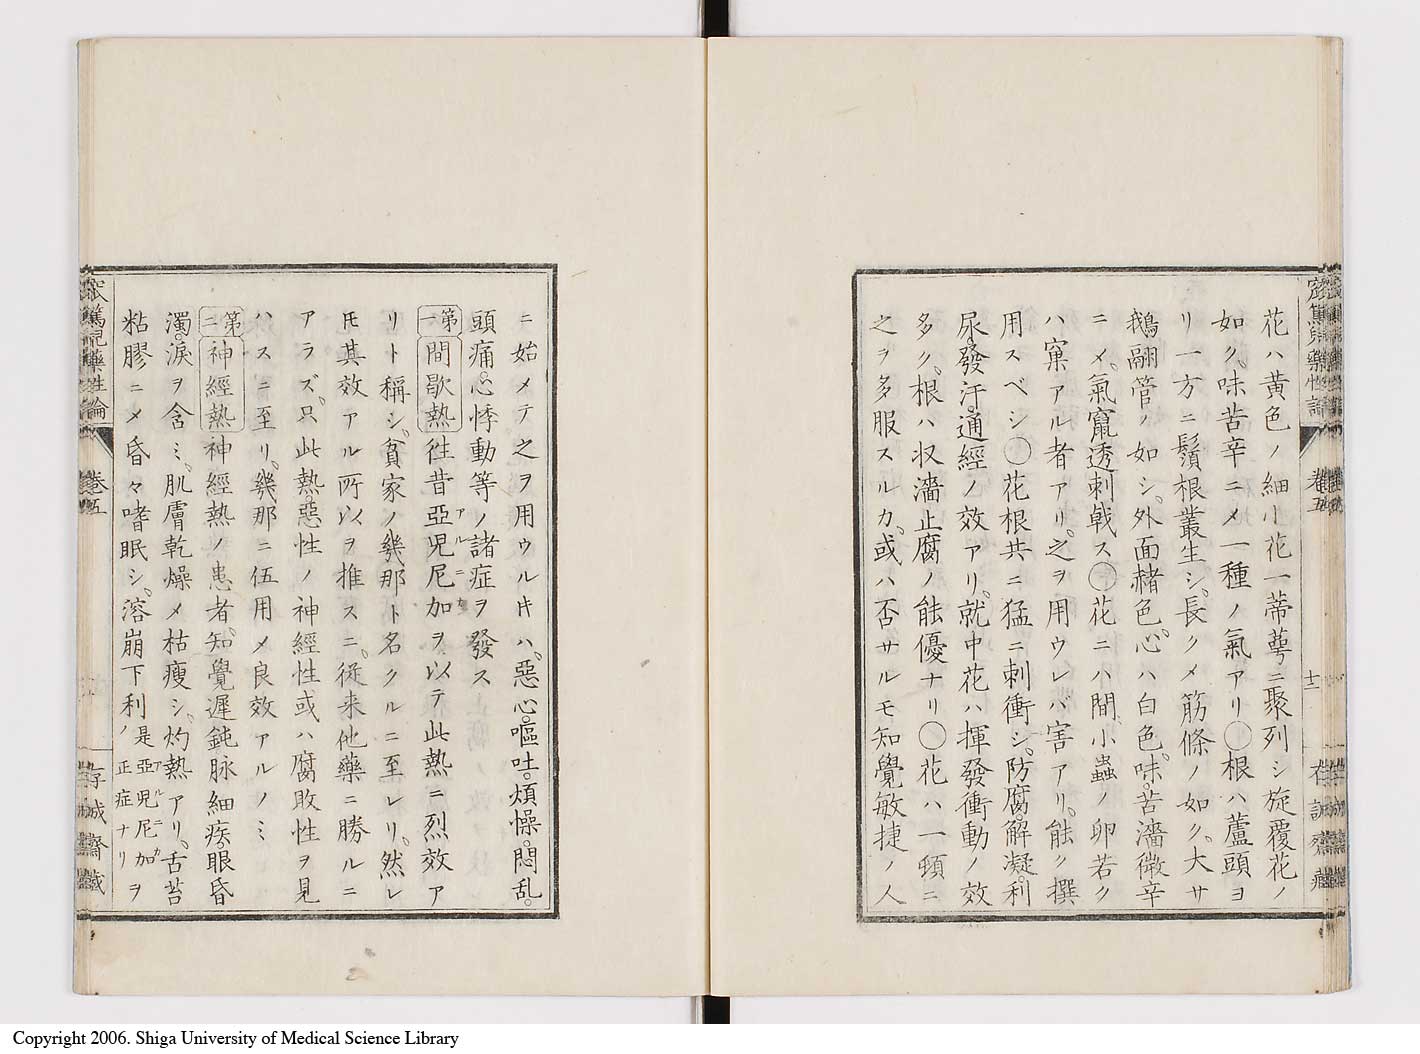 花ハ黃色ノ細小花一蒂萼ニ聚列シ旋覆花ノ
如ク。味苦辛ニメ一種ノ氣アリ〇根ハ蘆頭ヨ
リ一方ニ鬚根叢生シ。長クメ筋條ノ如ク。大サ
鵝翮管ノ如シ。外面赭色。心ハ白色。味。苦濇微辛
ニメ。氣竄透刺戟ス〇花ニハ間。小蟲ノ卵若ク
ハ窠アル者アリ。之ヲ用ウレバ害アリ。能ク撰
用スベシ〇花根共ニ猛ニ刺衝シ。防腐。解凝。利
尿。發汗。通經ノ效アリ。就中花ハ揮發衝動ノ效
多ク。根ハ収濇止腐ノ能優ナリ〇花ハ一頓ニ
之ヲ多服スルカ。或ハ否サルモ知覺敏捷ノ人
ニ始メテ之ヲ用ウル片ハ。惡心。嘔吐。煩悗。悶乱。
頭痛。心悸動等ノ諸症ヲ發ス
第一 間歇熱 徃昔亞児尼加ヲ以テ此熱ニ烈效ア
アルニカ
リト稱シ。貧家ノ幾那ト名クルニ至レリ。然レ
𪜈其效アル所以ヲ推スニ。従来他藥ニ勝ルニ
アラズ。只此熱。惡性ノ神經性或ハ腐敗性ヲ見
ハスニ至リ。幾那ニ伍用メ良效アルノミ
第二 神經熱 神經熱ノ患者。知覺遲鈍脉細疾眼昏
濁。淚ヲ含ミ。肌膚乾燥メ枯瘦シ。灼熱アリ。舌苔
粘膠ニメ昏々嗜眠シ。溶崩下利ノ 是亞児尼加ヲ
アルニカ
正症ナリ
窊篤児藥性論
卷五
十二
存誠齋藏